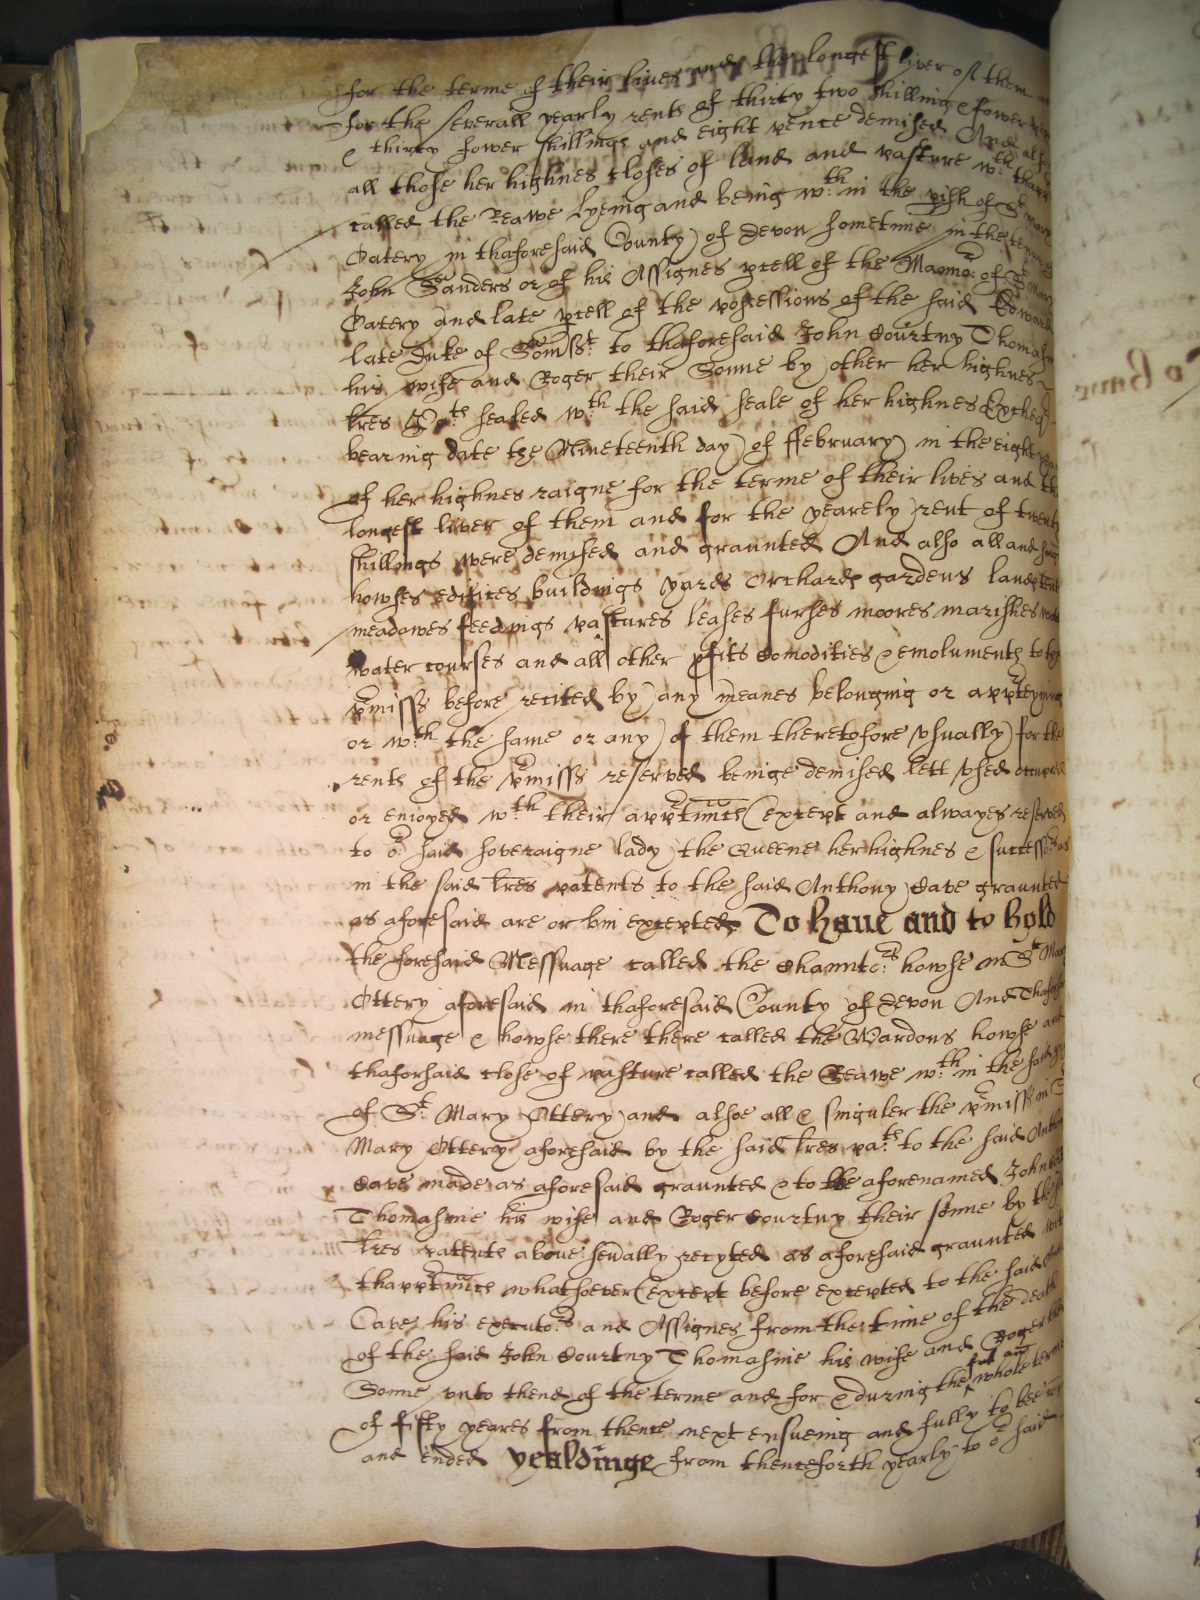 for the terme of their lives and the longest liver of them
for the severall yearly rents of thirty two shillings & fower
& thirty fower shillings and eight pence demised And also
all those her highnes closes of land and pasture wth thapp
called the Reawe lyeing and being wth in the pish of St Mary
Oatery in thaforesaid County of Devon sometime in the tenure
John Sanders or of his Assignes pcell of the Manno: of St Mary
Oatery and late pcell of the possessions of the said Edward
late Duke of Somsst: to thaforesaid John Courtny Thomasin
his wife and Roger their Sonne by other her highnes
lres Pts sealed wth the said seale of her highnes Excheqr
bearing date the Nineteenth day of ffebruary in the eight yeare
of her highnes raigne for the terme of their lives and the
longest liver of them and for the yearely rent of twenty
shillings were demised and graunted And also all and sing
howses edifices buildings yards Orchards gardens lands
meadowes feedings pastures leases furses moores marishes
water courses and all other pfits Comodities & emoluments to the
pmisss before recited by any meanes belonging or appteyning
or wth the same or any of them theretofore vsually for the
rents of the pmisss reserved beinge demised lett vsed occupied
or enioyed wth their apptnncs (except and alwayes reserved
to or said soveraigne lady the Queene her highnes & successors as
in the said lres patents to the said Anthony Cave graunted
as aforesaid are or bin excepted To haue and to hold
the foresaid Messuage called the Channtors howse in St Mary
Ottery aforesaid in thaforesaid County of Devon And Thaforesaid
messuage & howse there there called the Wardons howse and
thaforsaid close of pasture called the Reawe wth in the said
of St Mary Ottery and alsoe all & singuler the pmisss in St
Mary Ottery aforesaid by the said lres pats to the said Anthony
Cave made as aforesaid graunted & to the aforenamed John
Thomasine his wife and Roger Courtny their sonne by the
lres patents above sevally recyted as aforesaid graunted with
thapptnncs whatsoever (except before excepted to the said
Cave his executors and Assignes from the time of the death
of the said John Courtny Thomasine his wife and Roger their
Sonne vnto thend of the terme and for & during the full and whole terme
of fifty yeares from thence next ensueing and fully to bee
and ended yealdinge from thenceforth yearly to or said